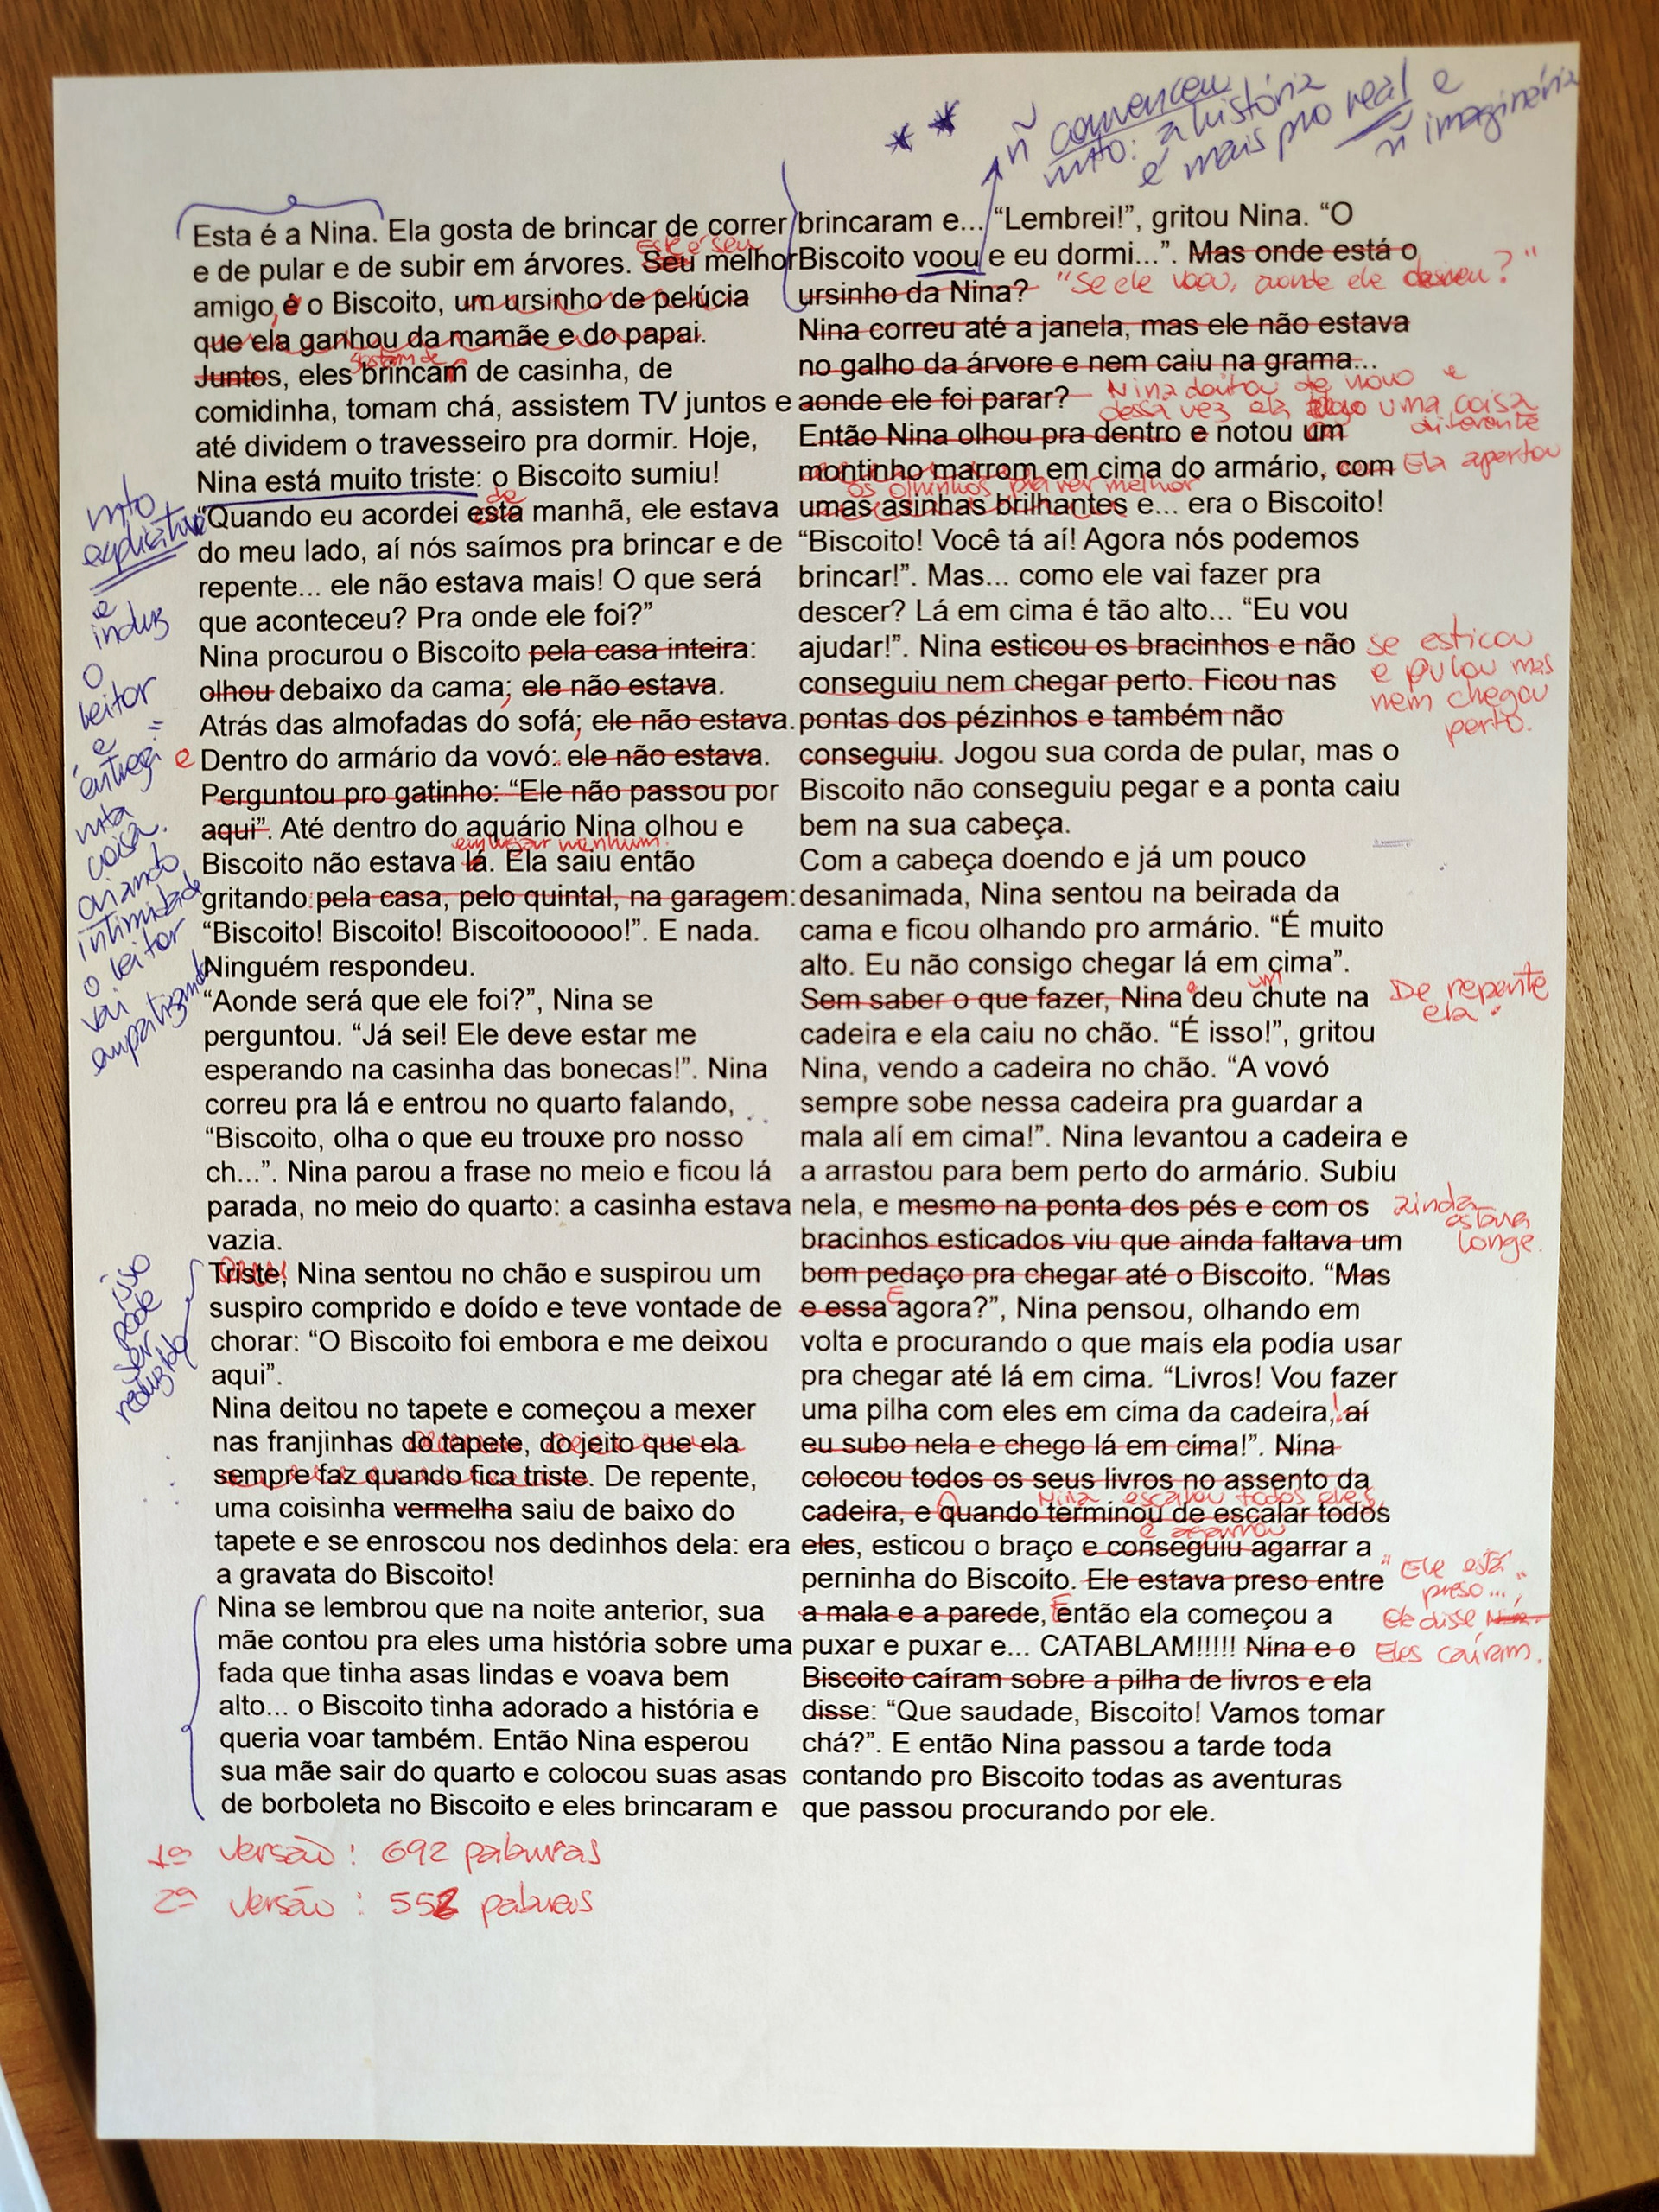 * *
ñ convenceu
mto: a história
é mais pro real e
ñ imaginária
Esta é a Nina. Ela gosta de brincar de correr
Este é seu
e de pular e de subir em árvores. Seu melhor
amigo, é o Biscoito, um ursinho de pelúcia
que ela ganhou da mamãe e do papai.
gostam de
Juntos, eles brincam de casinha, de
comidinha, tomam chá, assistem TV juntos e
até dividem o travesseiro pra dormir. Hoje,
Nina está muito triste: o Biscoito sumiu!
de
“Quando eu acordei esta manhã, ele estava
do meu lado, aí nós saímos pra brincar e de
repente... ele não estava mais! O que será
que aconteceu? Pra onde ele foi?”
Nina procurou o Biscoito pela casa inteira:
olhou debaixo da cama; ele não estava.
Atrás das almofadas do sofá; ele não estava.
e Dentro do armário da vovó: ele não estava.
Perguntou pro gatinho: “Ele não passou por
aqui”. Até dentro do aquário Nina olhou e
em lugar nenhum.
Biscoito não estava lá. Ela saiu então
gritando pela casa, pelo quintal, na garagem:
“Biscoito! Biscoito! Biscoitooooo!”. E nada.
Ninguém respondeu.
“Aonde será que ele foi?”, Nina se
perguntou. “Já sei! Ele deve estar me
esperando na casinha das bonecas!”. Nina
correu pra lá e entrou no quarto falando,
“Biscoito, olha o que eu trouxe pro nosso
ch...”. Nina parou a frase no meio e ficou lá
parada, no meio do quarto: a casinha estava
vazia.
Triste, Nina sentou no chão e suspirou um
suspiro comprido e doído e teve vontade de
chorar: “O Biscoito foi embora e me deixou
aqui”.
Nina deitou no tapete e começou a mexer
nas franjinhas do tapete, do jeito que ela
sempre faz quando fica triste. De repente,
uma coisinha vermelha saiu de baixo do
tapete e se enroscou nos dedinhos dela: era
a gravata do Biscoito!
Nina se lembrou que na noite anterior, sua
mãe contou pra eles uma história sobre uma
fada que tinha asas lindas e voava bem
alto... o Biscoito tinha adorado a história e
queria voar também. Então Nina esperou
sua mãe sair do quarto e colocou suas asas
de borboleta no Biscoito e eles brincaram e
mto
explicativo
e
induz
o
leitor
e
entrega
mta
coisa.
criando
intimidade
o leitor
vai
empatizando
isso
pode
ser
reduzido
brincaram e... “Lembrei!”, gritou Nina. “O
Biscoito voou e eu dormi...”. Mas onde está o
ursinho da Nina? “Se ele voou, aonde ele desceu?”
Nina correu até a janela, mas ele não estava
no galho da árvore e nem caiu na grama...
aonde ele foi parar? Nina deitou de novo e
dessa vez ela uma coisa
diferente
Então Nina olhou pra dentro e notou um
montinho marrom em cima do armário, com Ela apertou
os olhinhos pra ver melhor
umas asinhas brilhantes e... era o Biscoito!
“Biscoito! Você tá aí! Agora nós podemos
brincar!”. Mas... como ele vai fazer pra
descer? Lá em cima é tão alto... “Eu vou
ajudar!”. Nina esticou os bracinhos e não se esticou
conseguiu nem chegar perto. Ficou nas e pulou mas
nem chegou
pontas dos pézinhos e também não perto.
conseguiu. Jogou sua corda de pular, mas o
Biscoito não conseguiu pegar e a ponta caiu
bem na sua cabeça.
Com a cabeça doendo e já um pouco
desanimada, Nina sentou na beirada da
cama e ficou olhando pro armário. “É muito
alto. Eu não consigo chegar lá em cima”.
um
Sem saber o que fazer, Nina deu chute na De repente
ela
cadeira e ela caiu no chão. “É isso!”, gritou
Nina, vendo a cadeira no chão. “A vovó
sempre sobe nessa cadeira pra guardar a
mala alí em cima!”. Nina levantou a cadeira e
a arrastou para bem perto do armário. Subiu
nela, e mesmo na ponta dos pés e com os ainda
estava
bracinhos esticados viu que ainda faltava um longe.
bom pedaço pra chegar até o Biscoito. “Mas
E
e essa agora?”, Nina pensou, olhando em
volta e procurando o que mais ela podia usar
pra chegar até lá em cima. “Livros! Vou fazer
uma pilha com eles em cima da cadeira,! aí
eu subo nela e chego lá em cima!”. Nina
colocou todos os seus livros no assento da
Nina escalou todos eles,
cadeira, e quando terminou de escalar todos
e agarrou
eles, esticou o braço e conseguiu agarrar a
perninha do Biscoito. Ele estava preso entre “Ele está
preso...”,
a mala e a parede, E então ela começou a ela disse
puxar e puxar e... CATABLAM!!!!! Nina e o Eles caíram.
Biscoito caíram sobre a pilha de livros e ela
disse: “Que saudade, Biscoito! Vamos tomar
chá?”. E então Nina passou a tarde toda
contando pro Biscoito todas as aventuras
que passou procurando por ele.
1ª versão: 692 palavras
2ª versão: 552 palavras